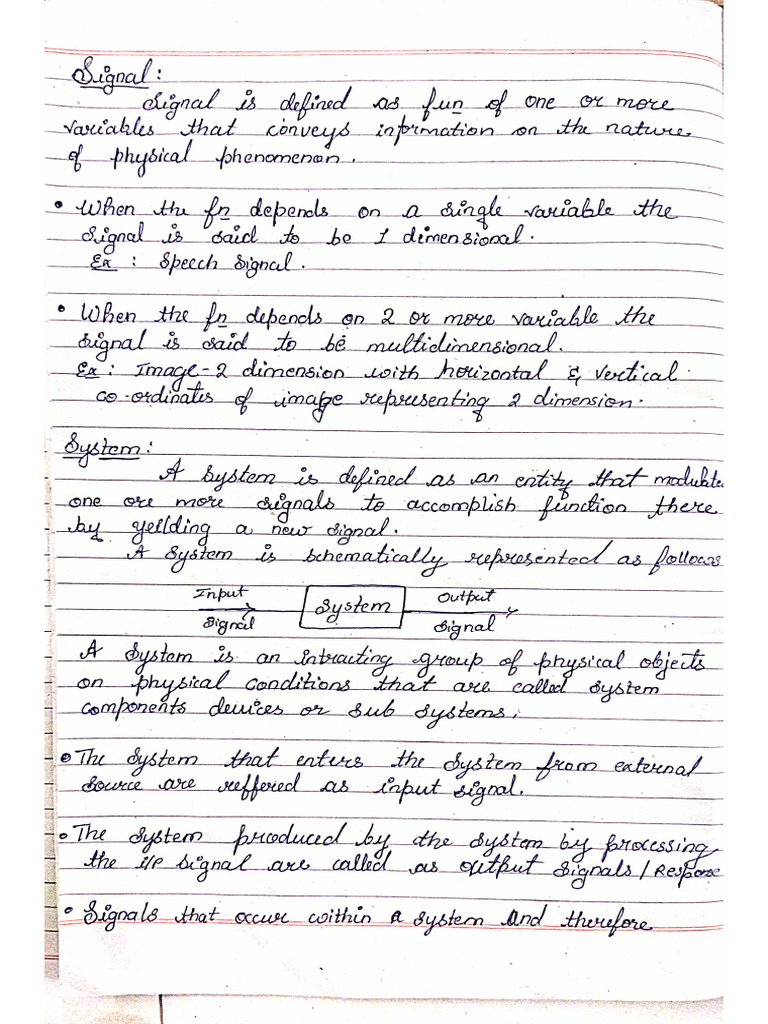 Signal:
Signal is defined as fun of one or more
variables that conveys information on the nature
of physical phenomenon.
• When the fn depends on a single variable the
signal is said to be 1 dimensional.
Ex : Speech Signal.
• When the fn depends on 2 or more variable the
signal is said to be multidimensional.
Ex : Image-2 dimension with horizontal & vertical
co-ordinates of image representing 2 dimension.
System:
A system is defined as an entity that
one ore more signals to accomplish function there
by yeilding a new signal.
A system is schematically represented as follows
Input System Output
Signal Signal
A system is an intracting group of physical objects
on physical conditions that are called system
components devices or sub systems.
• The system that enters the system from external
source are reffered as input signal.
• The system produced by the system by processing
the i/p signal are called as output signals / Response
• Signals that occur within a system and therefore